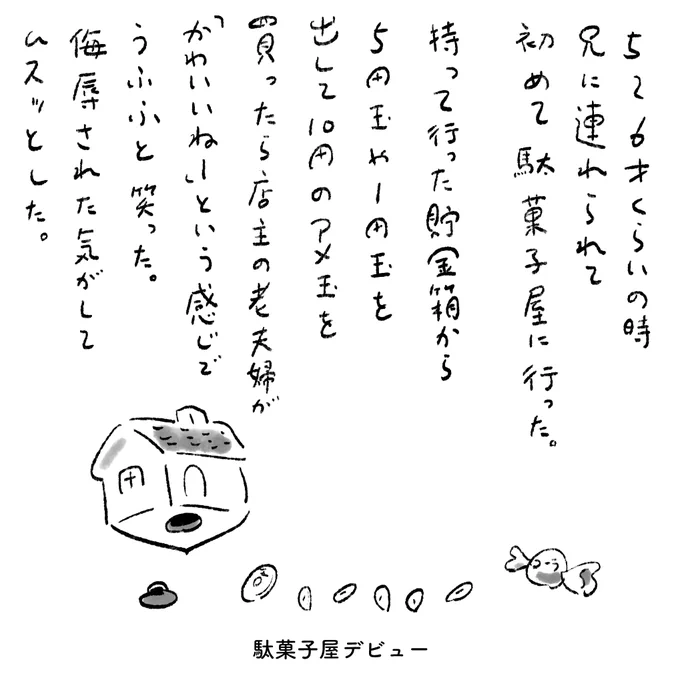 5て6才くらいの時
兄に連れられて
初めて駄菓子屋に行った。
持って行った貯金箱から
5円玉や1円玉を
出して10円のアメ玉を
買ったら店主の老夫婦が
「かわいいねー」という感じで
うふふと笑った。
侮辱された気がして
ムスッとした。
駄菓子屋デビュー